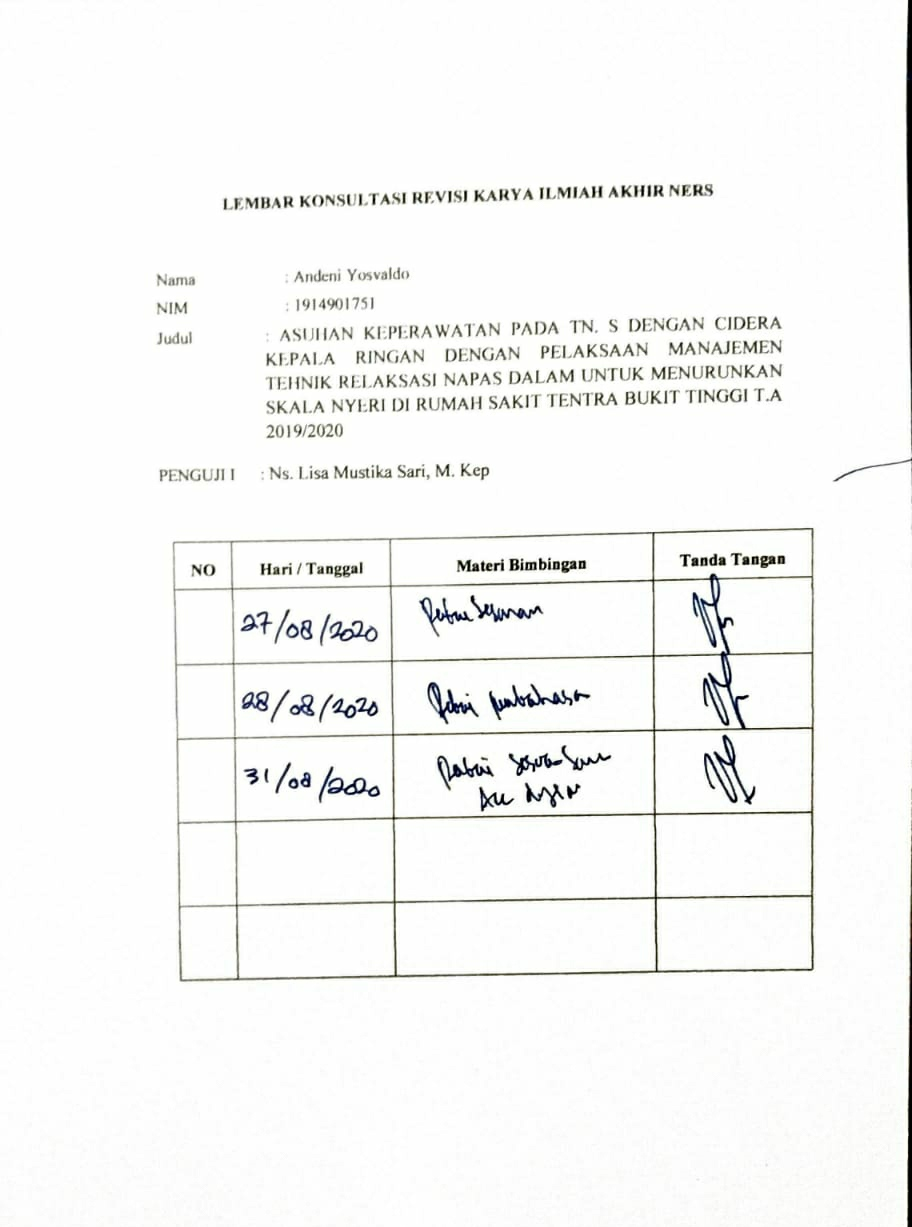 LEMBAR KONSULTASI REVISI KARYA ILMIAH AKHIR NERS
Nama : Andeni Yosvaldo
NIM : 1914901751
Judul : ASUHAN KEPERAWATAN PADA TN. S DENGAN CIDERA
KEPALA RINGAN DENGAN PELAKSAAN MANAJEMEN
TEHNIK RELAKSASI NAPAS DALAM UNTUK MENURUNKAN
SKALA NYERI DI RUMAH SAKIT TENTRA BUKIT TINGGI T.A
2019/2020
PENGUJI I : Ns. Lisa Mustika Sari, M. Kep
NO Hari / Tanggal Materi Bimbingan Tanda Tangan
27/08/2020
28/08/2020
31/08/2020